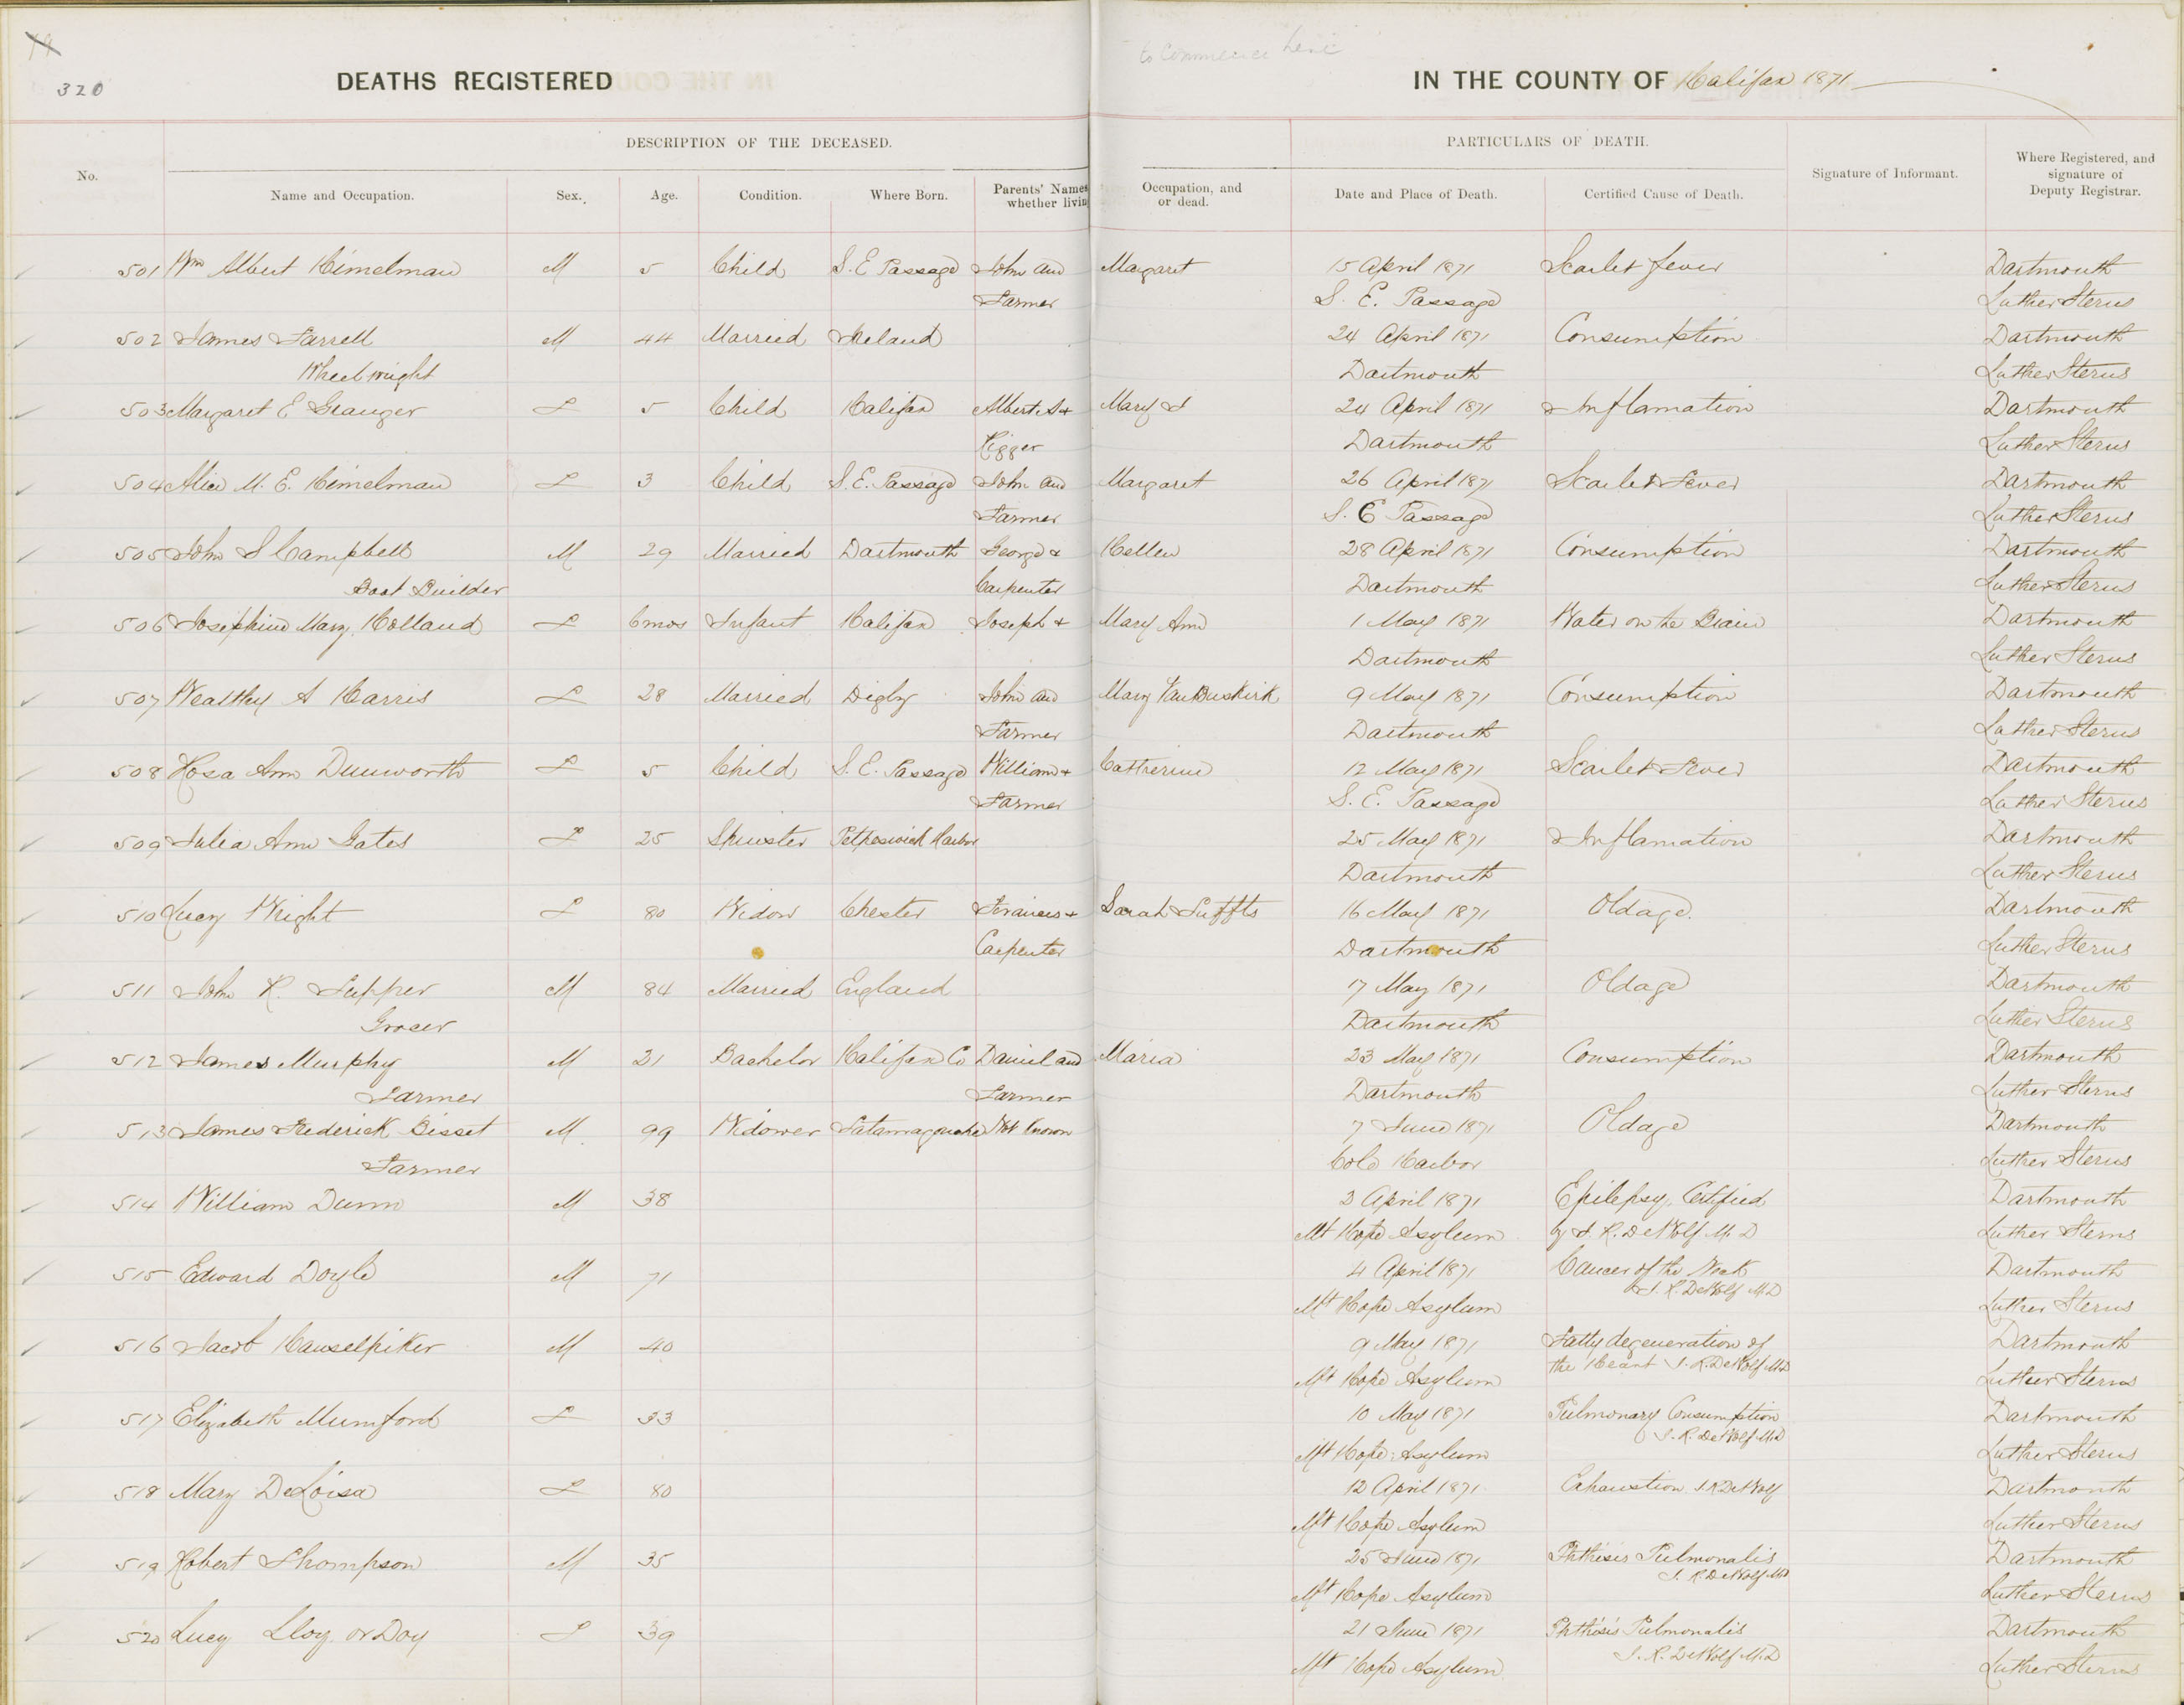 19
320
to commence here
DEATHS REGISTERED IN THE COUNTY OF Halifax 1871
DESCRIPTION OF THE DECEASED. PARTICULARS OF DEATH.
No. Name and Occupation. Sex. Age. Condition. Where Born. Parents' Names whether livin Occupation, and or dead. Date and Place of Death. Certified Cause of Death. Signature of Informant. Where Registered, and signature of Deputy Registrar.
501 Wm Albert Himelman M 5 Child S. E. Passage John and Margaret 15 April 1871 Scarlet fever Dartmouth
Farmer S. E. Passage Luther Sterns
502 James Farrell M 44 Married Ireland 24 April 1871 Consumption Dartmouth
Wheelwright Dartmouth Luther Sterns
503 Margaret E Granger F 5 Child Halifax Albert A + Mary 24 April 1871 Inflamation Dartmouth
Rigger Dartmouth Luther Sterns
504 Alice M. E. Himelman F 3 Child S. E. Passage John and Margaret 26 April 1871 Scarlet Fever Dartmouth
Farmer S. E Passage Luther Sterns
505 John S Campbell M 29 Married Dartmouth George + Hellen 28 April 1871 Consumption Dartmouth
Boat Builder Carpenter Dartmouth Luther Sterns
506 Josephine Mary Holland F 6 mos Infant Halifax Joseph + Mary Ann 1 May 1871 Water on the Brain Dartmouth
Dartmouth Luther Sterns
507 Wealthy A Harris F 28 Married Digby John and Mary VanBuskirk 9 May 1871 Consumption Dartmouth
Farmer Dartmouth Luther Sterns
508 Rosa Ann Dunworth F 5 Child S. E. Passage William + Catherine 12 May 1871 Scarlet Fever Dartmouth
Farmer S. E. Passage Luther Sterns
509 Julia Ann Gates F 25 Spinster Petpeswick Harbor 25 May 1871 Inflamation Dartmouth
Dartmouth Luther Sterns
510 Lucy Wright F 80 Widow Chester Francis + Sarah 16 May 1871 Oldage Dartmouth
Carpenter Dartmouth Luther Sterns
511 John R. Tapper M 84 Married England 17 May 1871 Oldage Dartmouth
Grocer Dartmouth Luther Sterns
512 James Murphy M 21 Bachelor Halifax Co Daniel and Maria 23 May 1871 Consumption Dartmouth
Farmer Farmer Dartmouth Luther Sterns
513 James Frederick Bisset M 99 Widower Tatamagouche Not known 7 June 1871 Oldage Dartmouth
Farmer Cole Harbor Luther Sterns
514 William Dunn M 38 2 April 1871 Epilepsy, Certified Dartmouth
Mt Hope Asylum by J. R. DeWolf M. D Luther Sterns
515 Edward Doyle M 71 4 April 1871 Cancer of the Neck Dartmouth
Mt Hope Asylum J. R. DeWolf M.D Luther Sterns
516 Jacob Hauselpiker M 40 9 May 1871 Fatty degeneration of Dartmouth
Mt Hope Asylum the Heart J. R. DeWolf M.D Luther Sterns
517 Elizabeth Mumford F 33 10 May 1871 Pulmonary Consumption Dartmouth
Mt Hope Asylum J. R. DeWolf M.D Luther Sterns
518 Mary DeLoisa F 80 12 April 1871 Exhaustion J. R DeWolf Dartmouth
Mt Hope Asylum Luther Sterns
519 Robert Thompson M 35 25 June 1871 Phthisis Pulmonalis Dartmouth
Mt Hope Asylum J. R. DeWolf M.D Luther Sterns
520 Lucy Lloy or Doy F 39 21 June 1871 Phthisis Pulmonalis Dartmouth
Mt Hope Asylum J. R. DeWolf M.D Luther Sterns